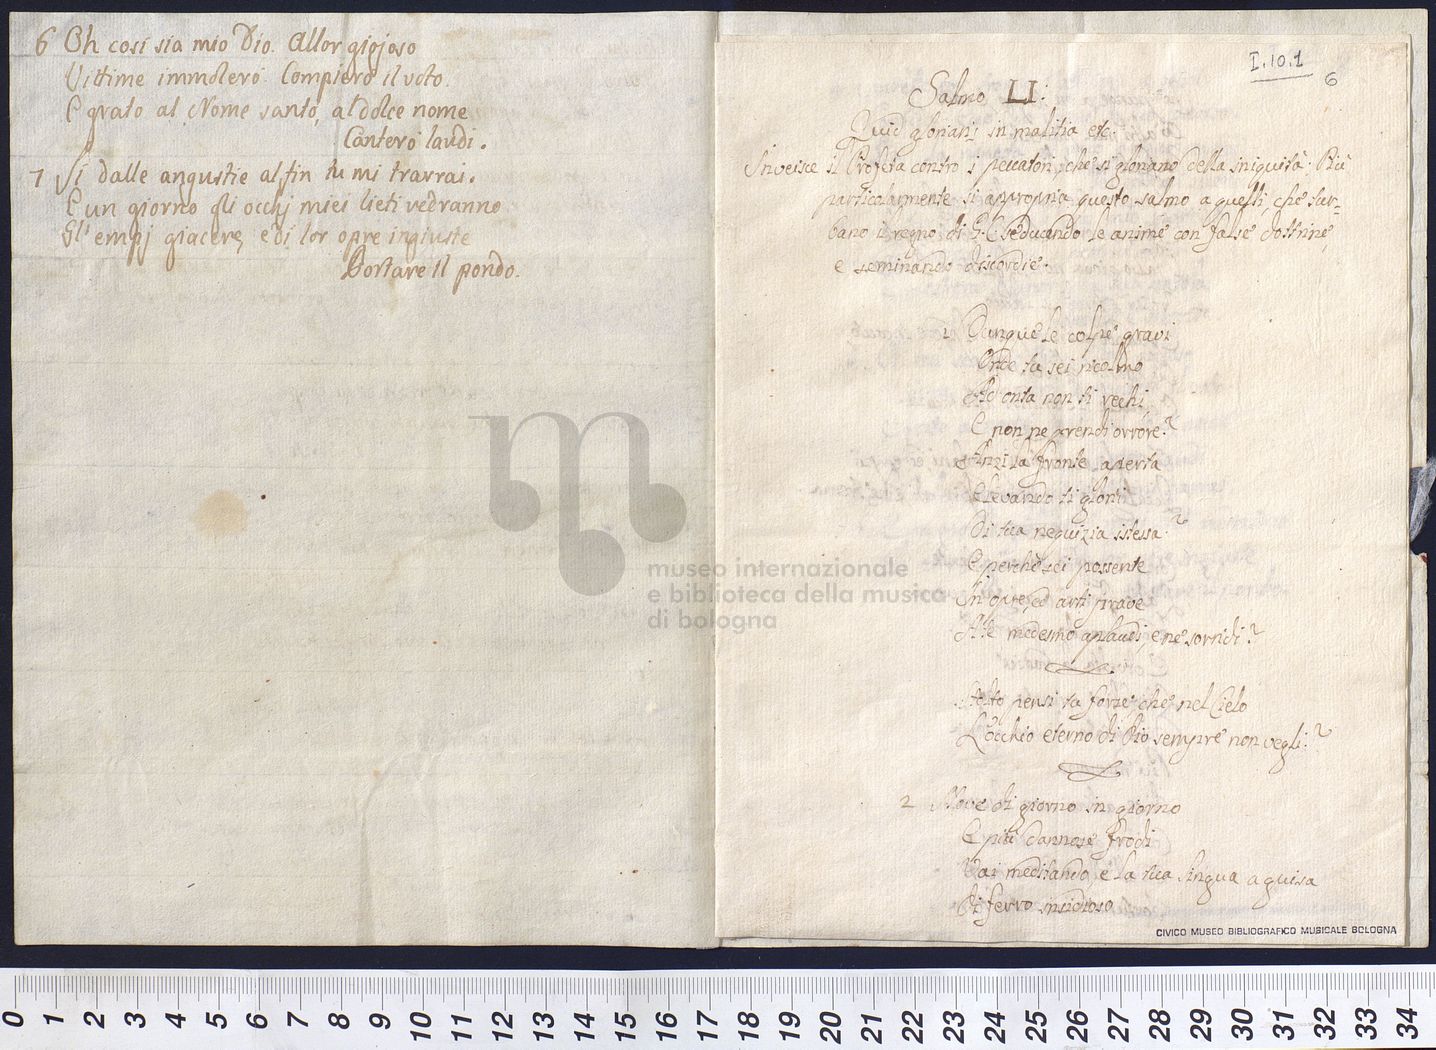 6 Oh così sia mio Dio. Allor giojoso
Vittime immolerò. Compierò il voto.
E grato al Nome santo, al dolce nome
Canterò laudi.
7 Sì dalle angustie al fin tu mi trarrai.
E un giorno gli occhj miei lieti vedranno
Gl'empj giacere, e di lor opre ingiuste
Portare il pondo.
I.10.1
6
Salmo LI.
Quid gloriaris in malitia etc.
Inveisce il Profeta contro i peccatori, che si gloriano della iniquità. Più
particolarmente si appropria questo salmo a quelli, che tur-
bano il regno di G. C. seducendo le anime con false dottrine,
e seminando discordie.
1 Dunque le colpe gravi
Onde tu sei ricolmo
Ad onta non ti rechi
E non ne prendi orrore?
Anzi la fronte aperta
Elevando ti glorii
Di tua nequizia istessa?
E perchè sei possente
In opre, ed arti prave
A te medesmo aplaudi, e ne sorridi?
Stolto pensi tu forse, che nel Cielo
L'occhio eterno di Dio sempre non vegli?
2 Nove di giorno in giorno
E più dannose frodi
Vai meditando, e la tua lingua a guisa
Di ferro insidioso
museo internazionale
e biblioteca della musica
di bologna
CIVICO MUSEO BIBLIOGRAFICO MUSICALE BOLOGNA
0 1 2 3 4 5 6 7 8 9 10 11 12 13 14 15 16 17 18 19 20 21 22 23 24 25 26 27 28 29 30 31 32 33 34